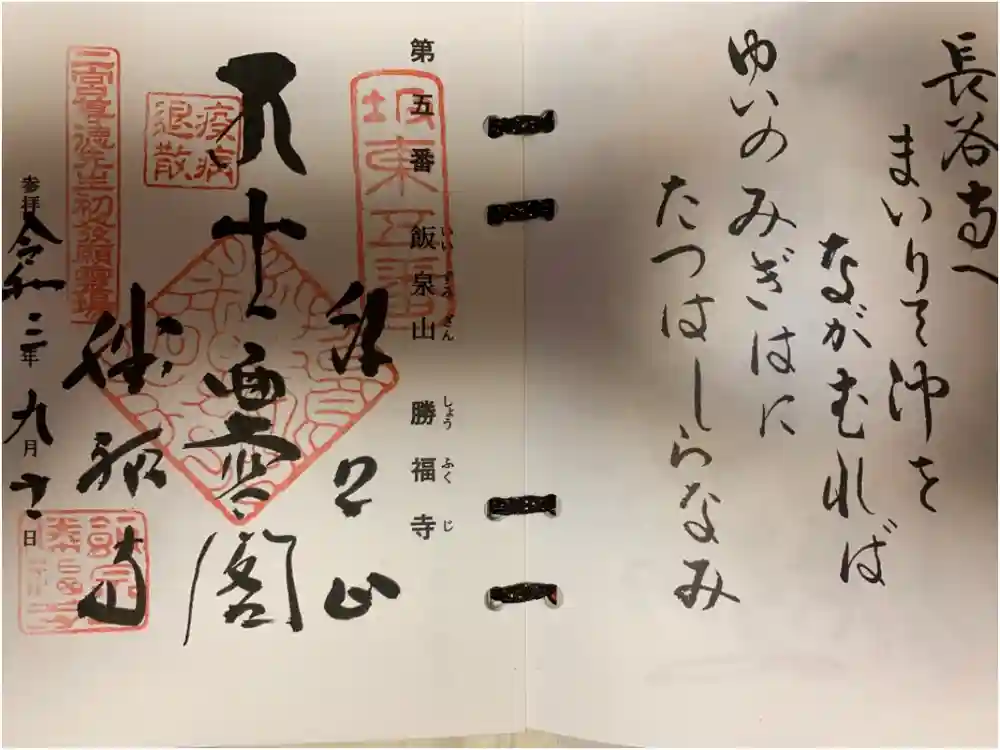 長谷寺へ
まいりて沖を
ながむれば
ゆいのみぎはに
たつはしらなみ
第五番 飯泉山 勝福寺
いいずみざん しょうふくじ
坂東五番
飯泉山
十一面
閣
疫病
退散
勝福寺
二宮尊徳先生初発願霊場
参拝 令和二年九月十二日